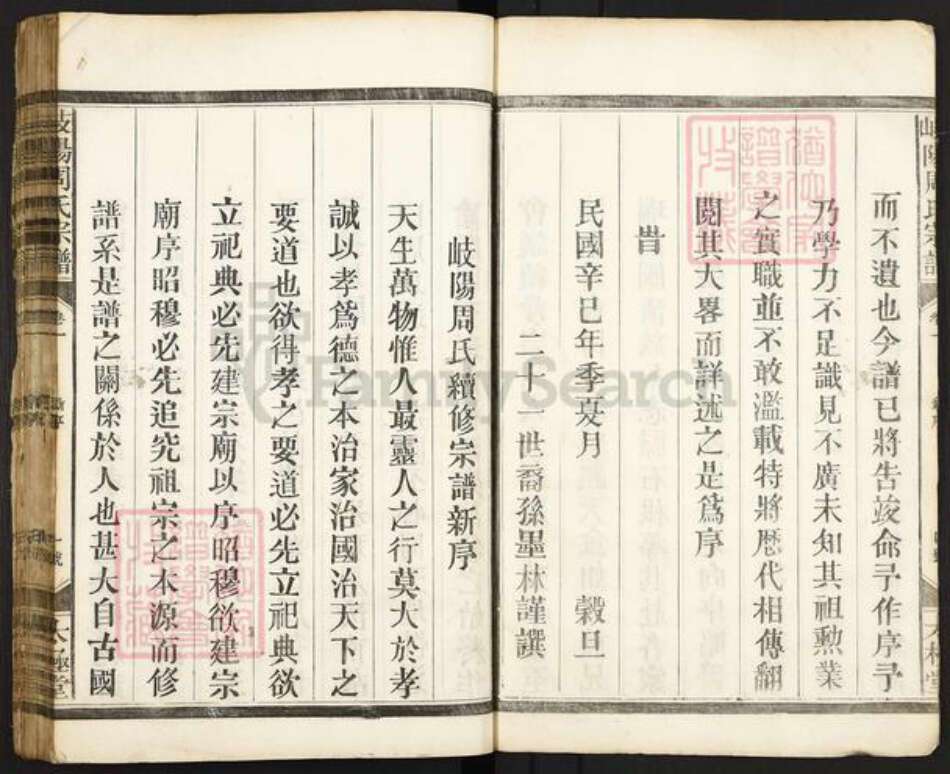 岐陽周氏宗譜
而不遺也今譜已將告竣命予作序予
乃學力不足識見不廣未知其祖勲業
之實職並不敢濫載特將歷代相傳翻
閱其大畧而詳述之是爲序
旹
民國辛巳年季夏月 穀旦
二十一世裔孫墨林謹譔
岐陽周氏續修宗譜新序
天生萬物惟人最靈人之行莫大於孝
誠以孝爲德之本治家治國治天下之
要道也欲得孝之要道必先立祀典欲
立祀典必先建宗廟以序昭穆欲建宗
廟序昭穆必先追究祖宗之本源而修
譜系是譜之關係於人也甚大自古國
岐陽周氏宗譜 卷一
FamilySearch